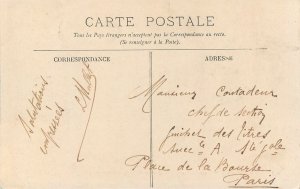 CARTE POSTALE
Tous les Pays étrangers n'acceptent pas la Correspondance au recto.
(Se renseigner à la Poste.)
CORRESPONDANCE
ADRESSE
Salutations
empressées
Monsieur Contadeur
chef de section
guichet des titres
Place de la Bourse
Paris